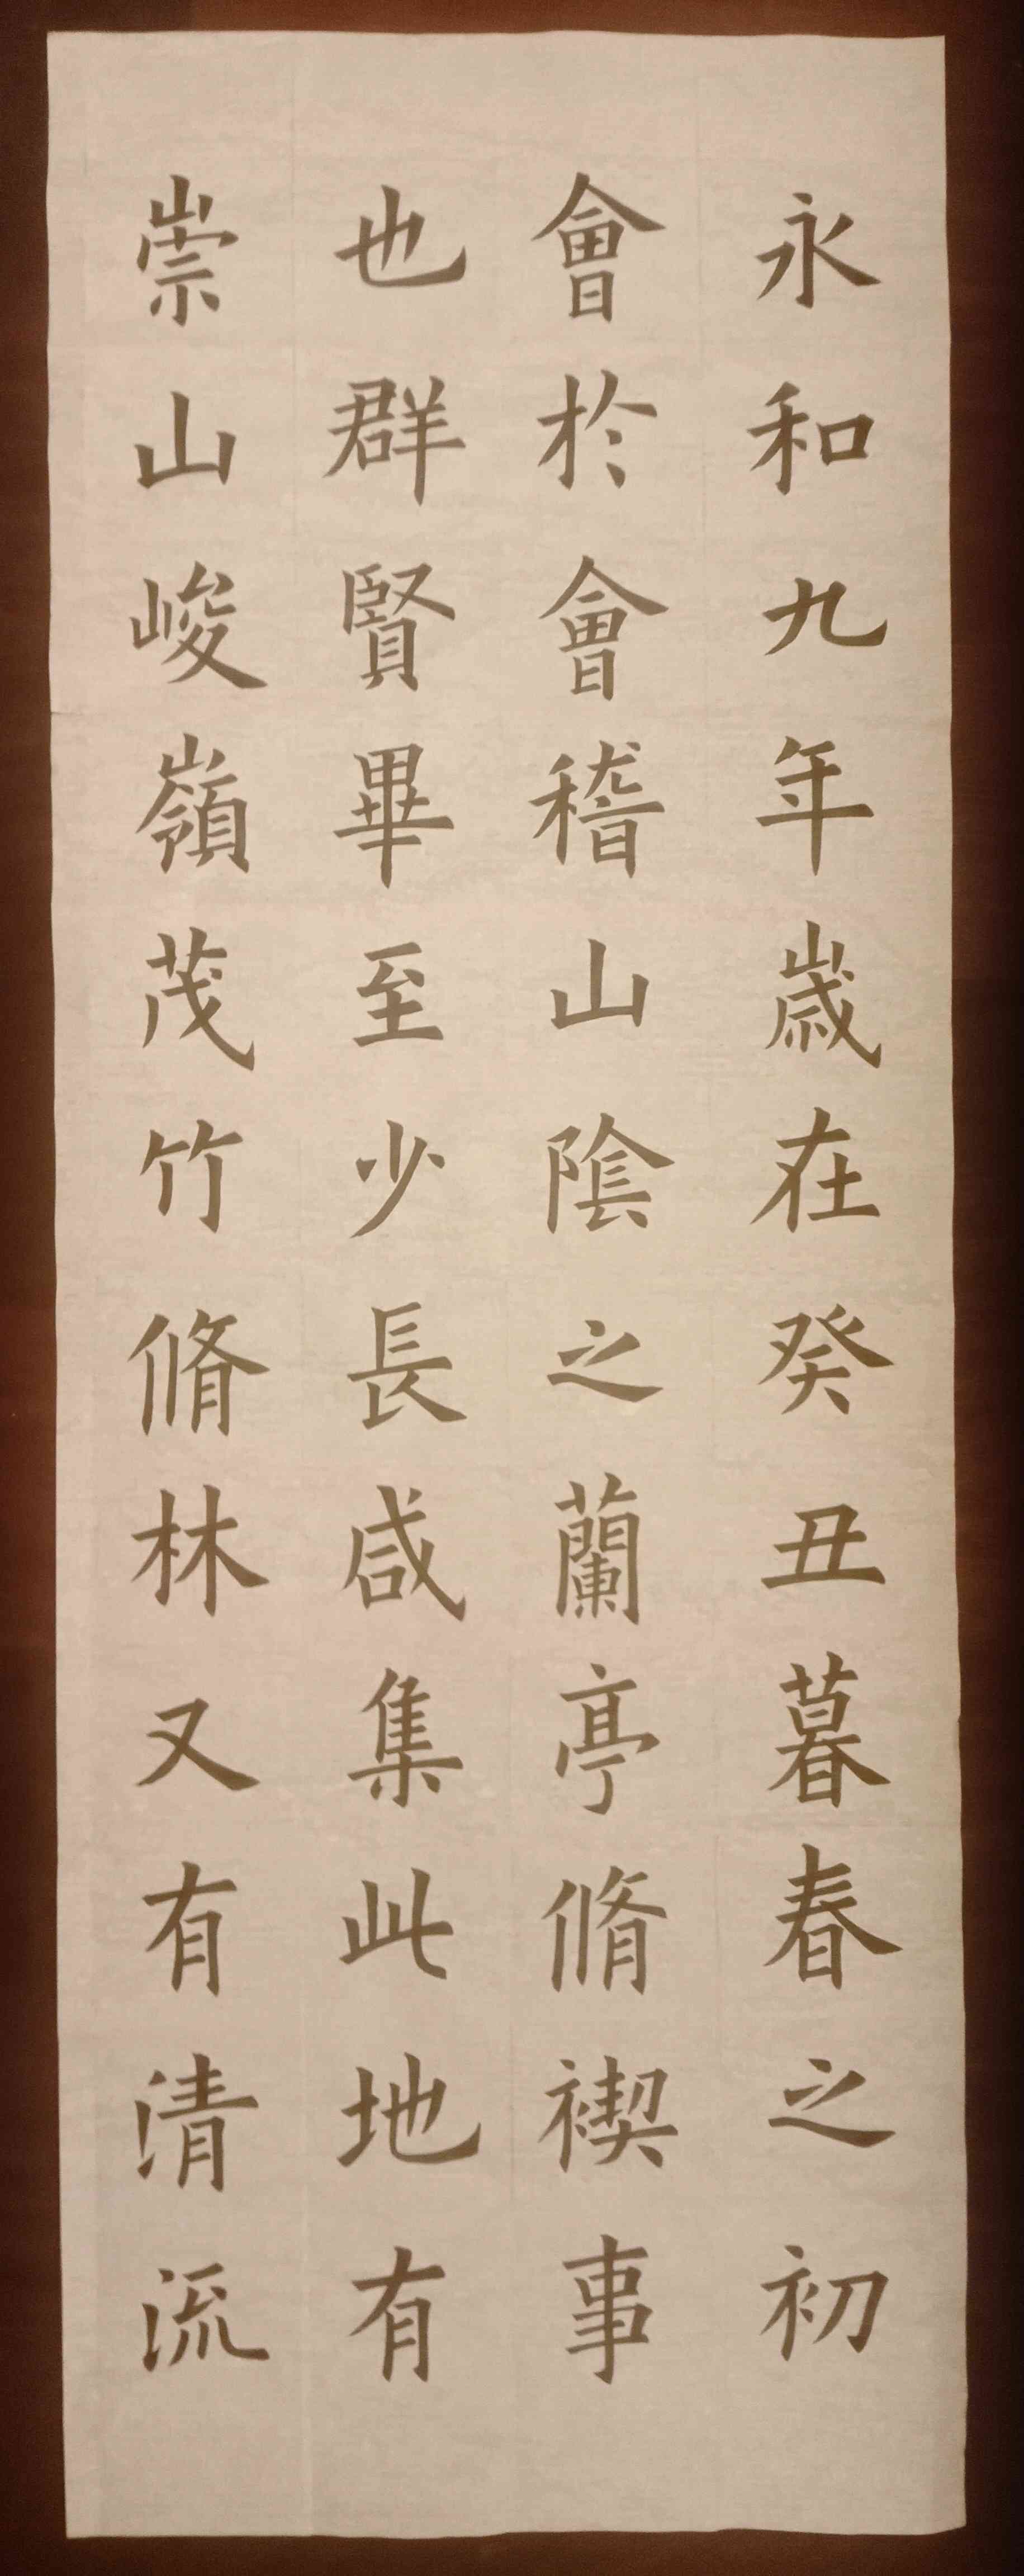 永和九年歲在癸丑暮春之初
會於會稽山陰之蘭亭脩禊事
也群賢畢至少長咸集此地有
崇山峻嶺茂竹脩林又有清流